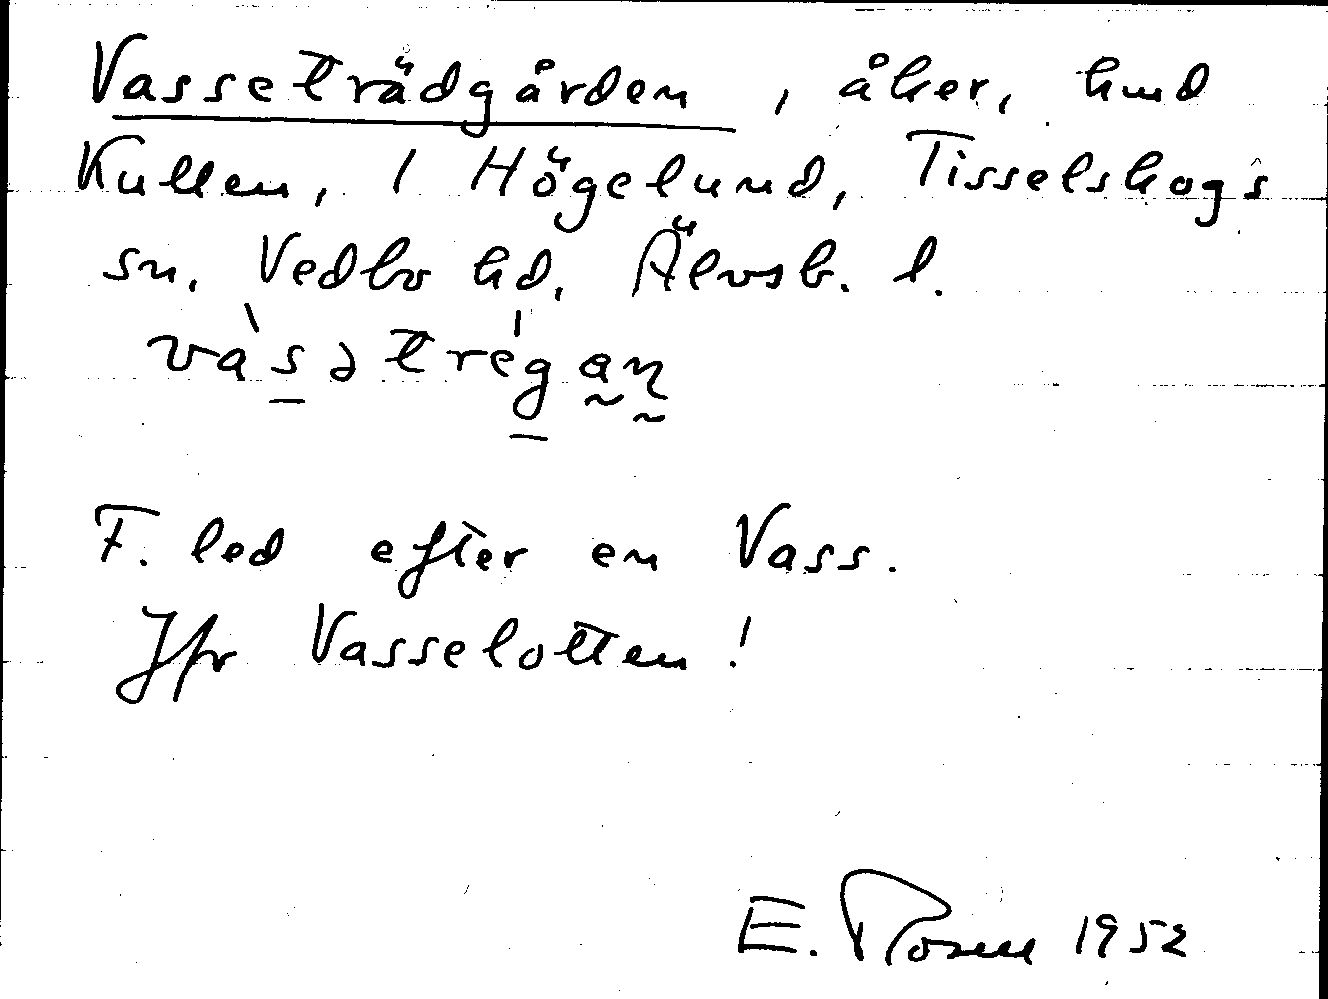 Vasseträdgården, åker, hmd
Kullen, 1 Högelund, Tisselskogs
sn, Vedbo hd, Älvsb. l.
vàsətrégan
F. led efter en Vass.
Jfr Vasselotten!
E. Rosell 1952